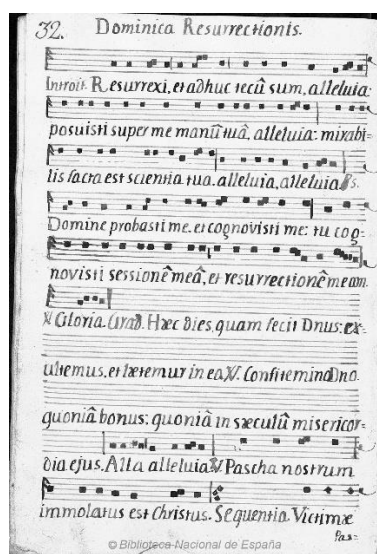 32. Dominica Resurrectionis.
Introit. Resurrexi, et adhuc tecū sum, alleluia:
posuisti super me manū tuā, alleluia: mirabi
lis facta est scientia tua. alleluia, alleluia Ps.
Domine probasti me, et cognovisti me: tu cog
novisti sessionē meā, et resurrectionē meam.
℣ Gloria. Grad. Hæc dies, quam fecit Dnus: ex-
ultemus, et lætemur in ea ℣. Confitemini Dno.
quoniā bonus: quoniā in sæculū misericor-
dia ejus. Alla alleluia ℣ Pascha nostrum
immolatus est Christus. Sequentia. Victimæ
Pas-
© Biblioteca Nacional de España